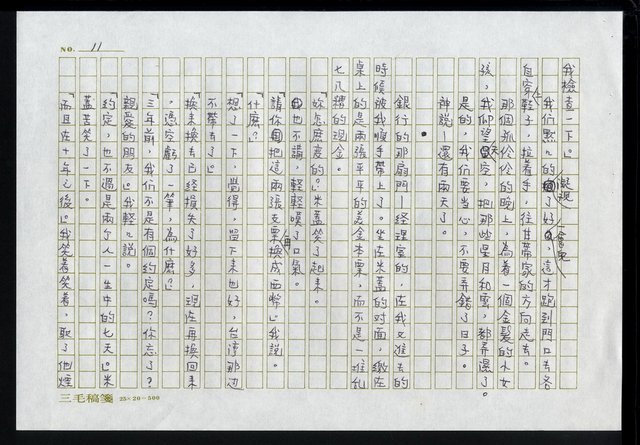 NO. 11
我檢查一下。」
我們點了好，這才跑到門口去各
自穿鞋子，拉着手，往甘蒂家的方向走去。
那個孤伶伶的晚上，為着一個金髮的小女
孩，我仰望天空，把那吵星月和雲，都弄濕了。
是的，我們要當心，不要弄錯了日子。
神說—還有兩天了。
銀行的那扇門—經理室的，在我又進去的
時候被我順手帶上了。坐在米蓋的对面，繳在
桌上的是兩張平平的美金本票，而不是一堆乱
七八糟的現金。
「妳怎麼變的？」米蓋笑了起來。
我也不講，輕輕嘆了口氣。
「請你把這兩張支票再換成西幣。」我說。
「什麼？」
「想了一下，覺得，留下來也好，台湾那边
不帶去了。」
「換來換去已經損失了好多，現在再換回來
，憑空虧了一筆，為什麼？」
「三年前，我們不是有個約定嗎？你忘了？
親愛的朋友。」我輕輕說。
「約定，也不過是兩个人一生中的七天。」米
蓋苦笑了一下。
「而且在十年之後。」我笑着笑着，取了他煙
三毛稿箋 25×20=500